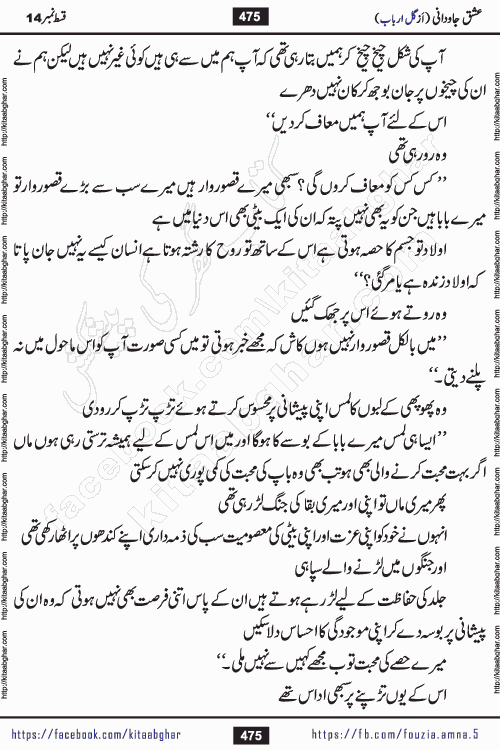 قسط نمبر 14
475
عشق جاودانی (از گل ارباب)
آپ کی شکل چیخ چیخ کر ہمیں بتا رہی تھی کہ آپ ہم میں سے ہی ہیں کوئی غیر نہیں ہیں لیکن ہم نے
ان کی چیخوں پر جان بوجھ کر کان نہیں دھرے
اس کے لئے آپ ہمیں معاف کر دیں‘‘
وہ رو رہی تھی
’’کس کس کو معاف کروں گی؟ سبھی میرے قصوروار ہیں میرے سب سے بڑے قصوروار تو
میرے بابا ہیں جن کو یہ بھی نہیں پتہ کہ ان کی ایک بیٹی بھی اس دنیا میں ہے
اولاد تو جسم کا حصہ ہوتی ہے اس کے ساتھ تو روح کا رشتہ ہوتا ہے انسان کیسے یہ نہیں جان پاتا
کہ اولاد زندہ ہے یا مر گئی؟‘‘
وہ روتے ہوئے اس پر جھک گئیں
’’میں بالکل قصوروار نہیں ہوں کاش کہ مجھے خبر ہوتی تو میں کسی صورت آپ کو اس ماحول میں نہ
پلنے دیتی۔‘‘
وہ پھوپھی کے لبوں کا لمس اپنی پیشانی پر محسوس کرتے ہوئے تڑپ تڑپ کر رو دی
’’ایسا ہی لمس میرے بابا کے بوسے کا ہوگا اور میں اس لمس کے لیے ہمیشہ ترستی رہی ہوں ماں
اگر بہت محبت کرنے والی بھی ہو تب بھی وہ باپ کی محبت کی کمی پوری نہیں کر سکتی
پھر میری ماں تو اپنی اور میری بقا کی جنگ لڑ رہی تھی
انہوں نے خود کو اپنی عزت اور اپنی بیٹی کی معصومیت سب کی ذمہ داری اپنے کندھوں پر اٹھا رکھی تھی
اور جنگوں میں لڑنے والے سپاہی
جلد کی حفاظت کے لیے لڑ رہے ہوتے ہیں ان کے پاس اتنی فرصت بھی نہیں ہوتی کہ وہ ان کی
پیشانی پر بوسہ دے کر اپنی موجودگی کا احساس دلا سکیں
میرے حصے کی محبت تو ب مجھے کہیں سے نہیں ملی۔‘‘
اس کے یوں تڑپنے پر سبھی اداس تھے
https://facebook.com/kitaabghar
475
https://fb.com/fouzia.amna.5
http://kitaabghar.com
facebook.com/kitaabghar
کتاب گھر کی پیشکش